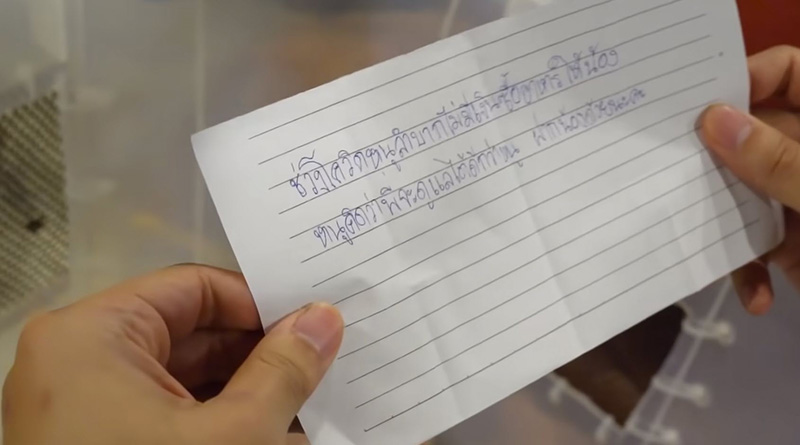 ช่วงโควิดหนูลำบากไม่มีเงินซื้ออาหารให้น้อง
หนูคิดว่าพี่จะดูแลได้ดีกว่าหนู ฝากน้องด้วยนะคะ